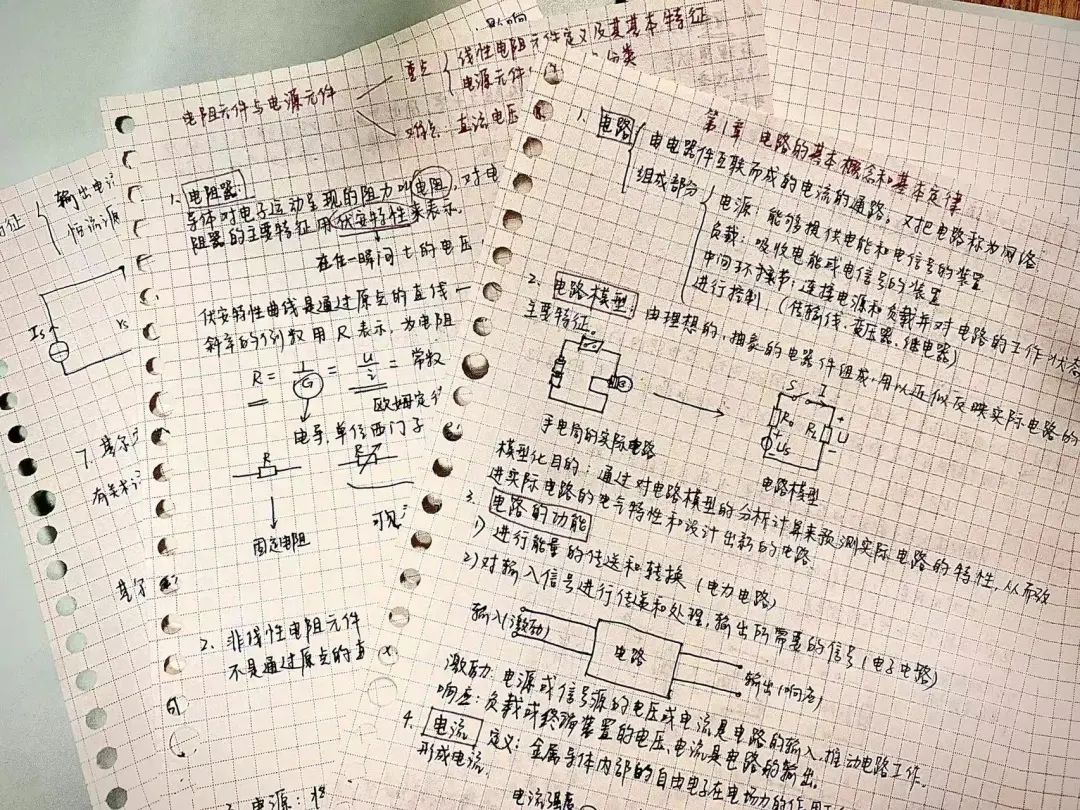 第1章 电路的基本概念和基本定律
1. 电路
电电器件互联而成的电流的通路。又把电路称为网络
组成部分
电源：能够提供电能和电信号的装置
负载：吸收电能或电信号的装置
中间环节：连接电源和负载并对电路的工作状态
进行控制 (传输线、变压器、继电器)
2. 电路模型：由理想的、抽象的电器件组成，用以近似反映实际电路的
主要特征。
手电筒的实际电路
S I
R₀ + Us R_L + U -
电路模型
模型化目的：通过对电路模型的分析计算来预测实际电路的特性，从而改
进实际电路的电气特性和设计出新的电路
3. 电路的功能
1) 进行能量的传送和转换 (电力电路)
2) 对输入信号进行传递和处理，输出所需要的信号 (电子电路)
输入(激励)
电路
输出(响应)
激励：电源或信号源的电压或电流是电路的输入，推动电路工作。
响应：负载或终端装置的电压、电流是电路的输出。
4. 电流 定义：金属导体内部的自由电子在电场力的作用
形成电流
电流强度
电阻元件与电源元件
重点
线性电阻元件定义及其基本特征
电源元件
分类
难点：直流电压
1. 电阻器：
导体对电子运动呈现的阻力叫电阻，对电
阻器的主要特征用伏安特性来表示.
在任一瞬间 t 的电压
伏安特性曲线是通过原点的直线一
斜率的例数用 R 表示，为电阻
R = 1/G = u/i = 常数
欧姆定
电导，单位西门子
R
R
固定电阻
可见
2. 非线性电阻元件
不是通过原点的直
3. 电源：
影响
特征
输出电
恒流源
Is
rs
7. 基尔
有关术语
基尔